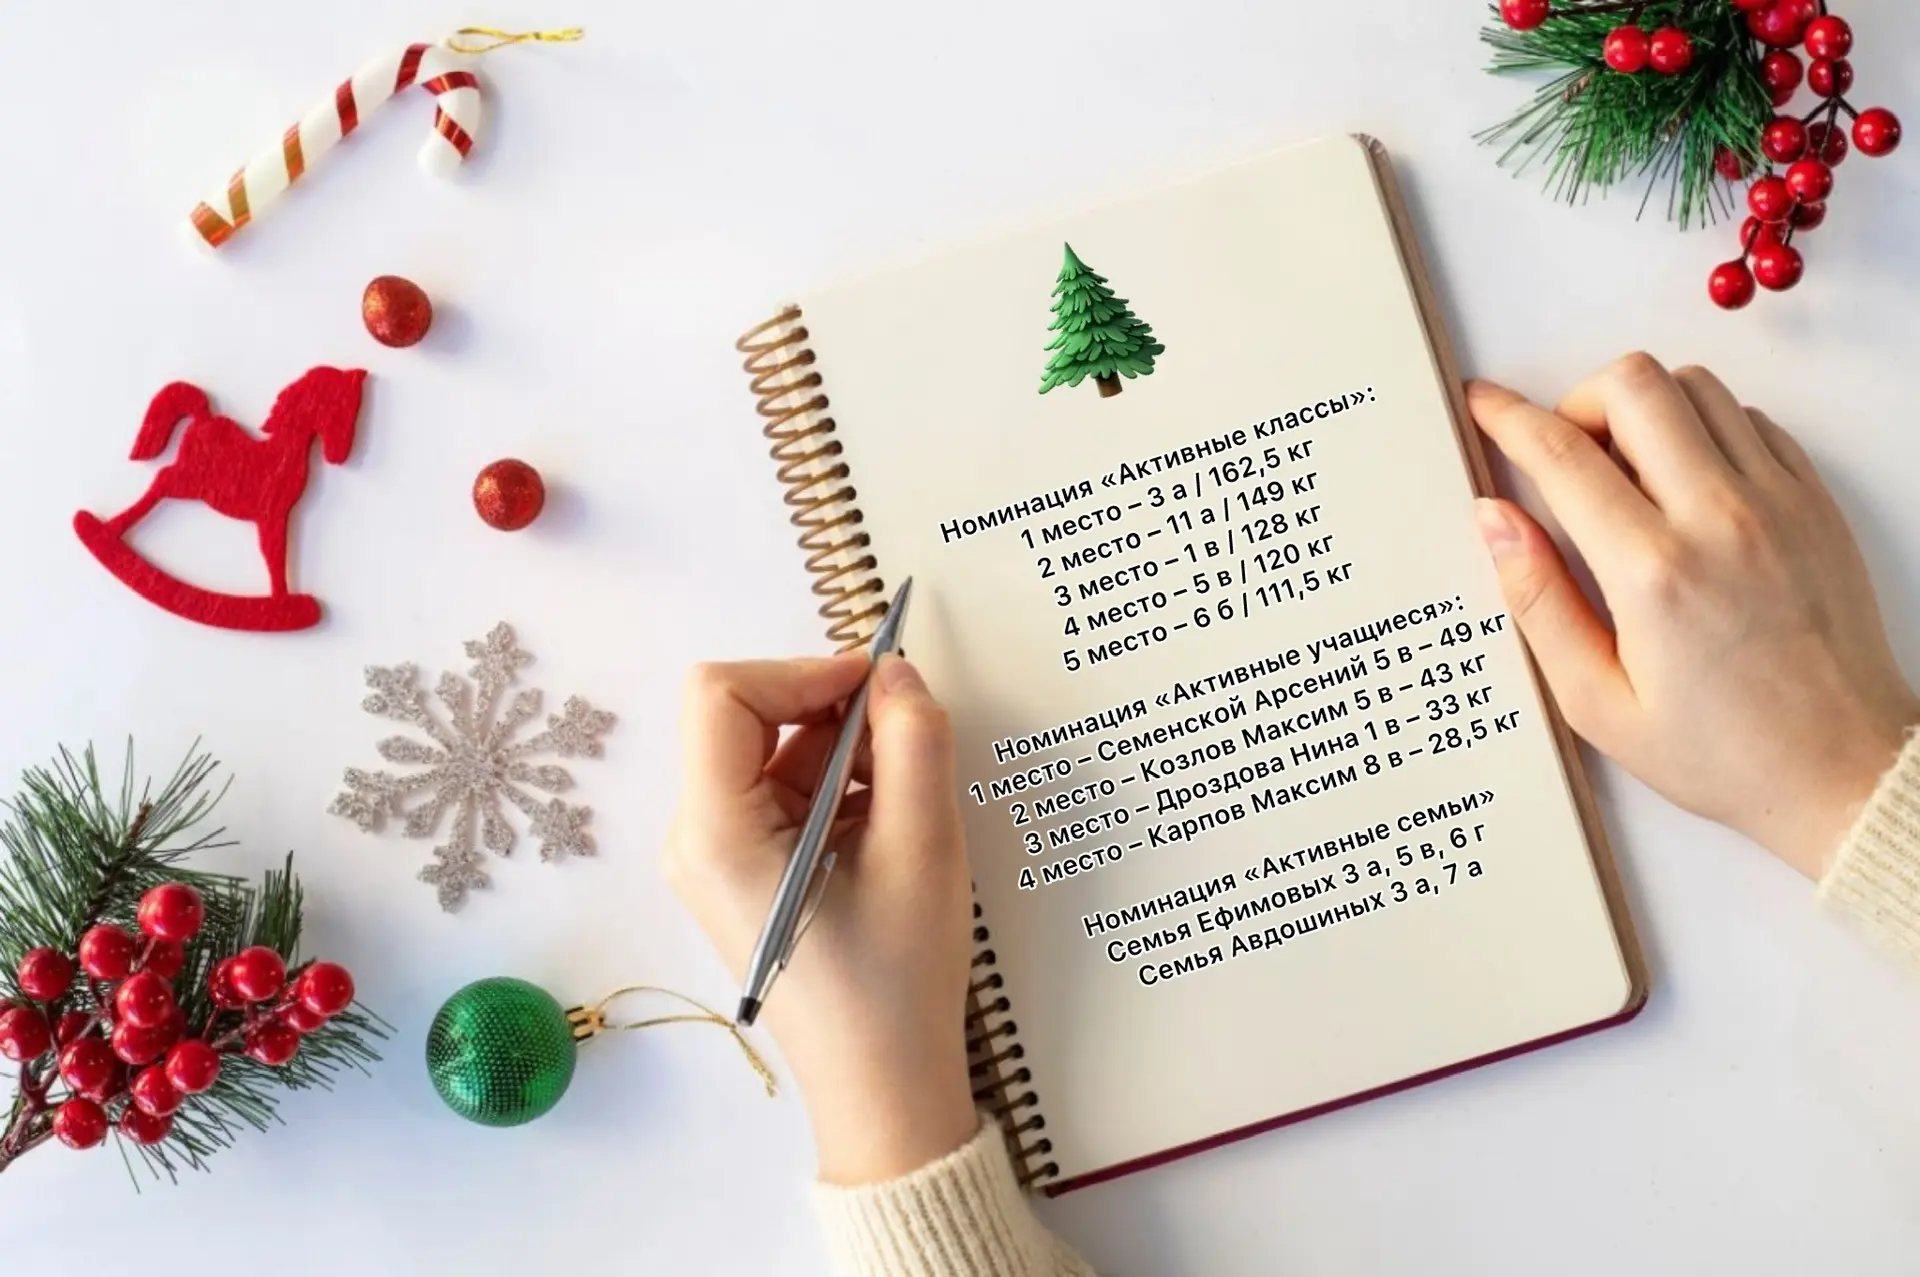 Номинация «Активные классы»:
1 место – 3 а / 162,5 кг
2 место – 11 а / 149 кг
3 место – 1 в / 128 кг
4 место – 5 в / 120 кг
5 место – 6 б / 111,5 кг
Номинация «Активные учащиеся»:
1 место – Семенской Арсений 5 в – 49 кг
2 место – Козлов Максим 5 в – 43 кг
3 место – Дроздова Нина 1 в – 33 кг
4 место – Карпов Максим 8 в – 28,5 кг
Номинация «Активные семьи»
Семья Ефимовых 3 а, 5 в, 6 г
Семья Авдошиных 3 а, 7 а